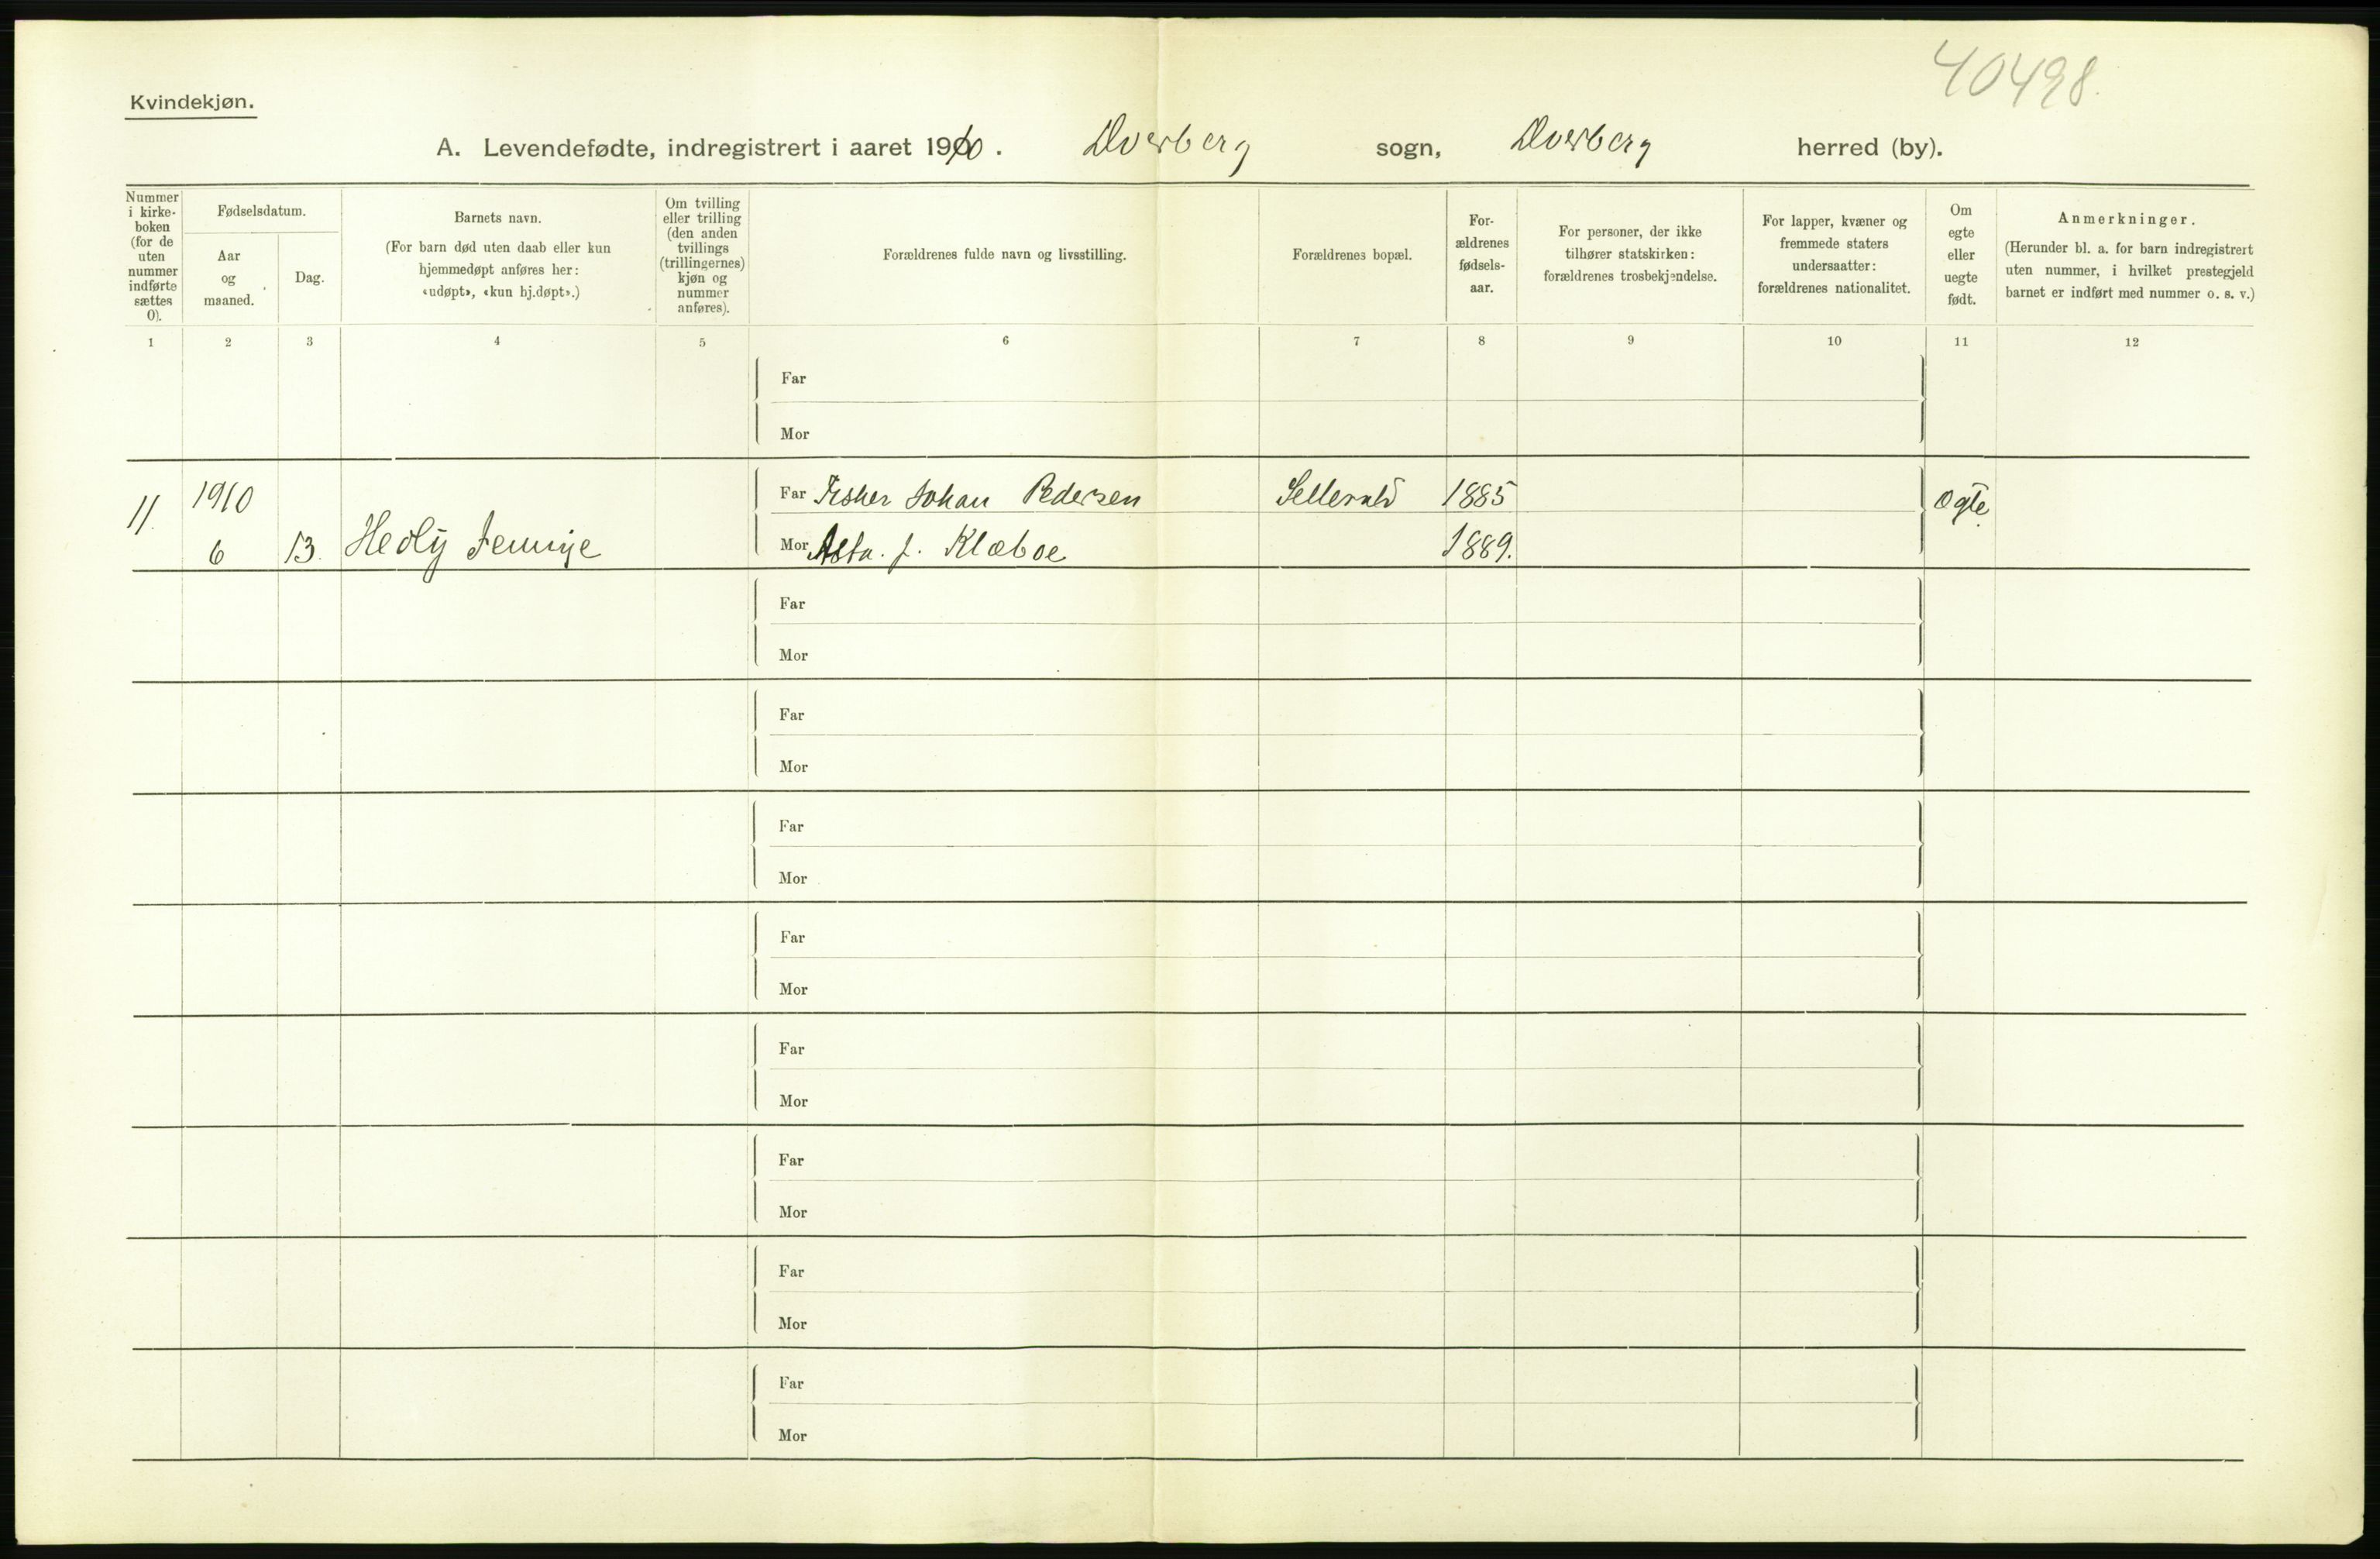 40498.
Kvindekjøn.
A. Levendefødte, indregistrert i aaret 1910. Dverberg sogn, Dverberg herred (by).
Nummer i kirke- boken (for de uten nummer indførte sættes 0).
Fødselsdatum.
Aar og maaned.
Dag.
Barnets navn.
(For barn død uten daab eller kun
hjemmedøpt anføres her:
«udøpt», «kun hj.døpt».)
Om tvilling
eller trilling
(den anden
tvillings
(trillingernes)
kjøn og
nummer
anføres).
Forældrenes fulde navn og livsstilling.
Forældrenes bopæl.
For-
ældrenes
fødsels-
aar.
For personer, der ikke
tilhører statskirken:
forældrenes trosbekjendelse.
For lapper, kvæner og
fremmede staters
undersaatter:
forældrenes nationalitet.
Om
egte
eller
uegte
født.
Anmerkninger.
(Herunder bl. a. for barn indregistrert
uten nummer, i hvilket prestegjeld
barnet er indført med nummer o. s. v.)
1 2 3 4 5 6 7 8 9 10 11 12
Far
Mor
11. 1910 Far Fisker Johan Pedersen 1885 Ogte
6 13. Hedly Jennye Mor Asta f. Klæboe 1889.
Far
Mor
Far
Mor
Far
Mor
Far
Mor
Far
Mor
Far
Mor
Far
Mor
Far
Mor